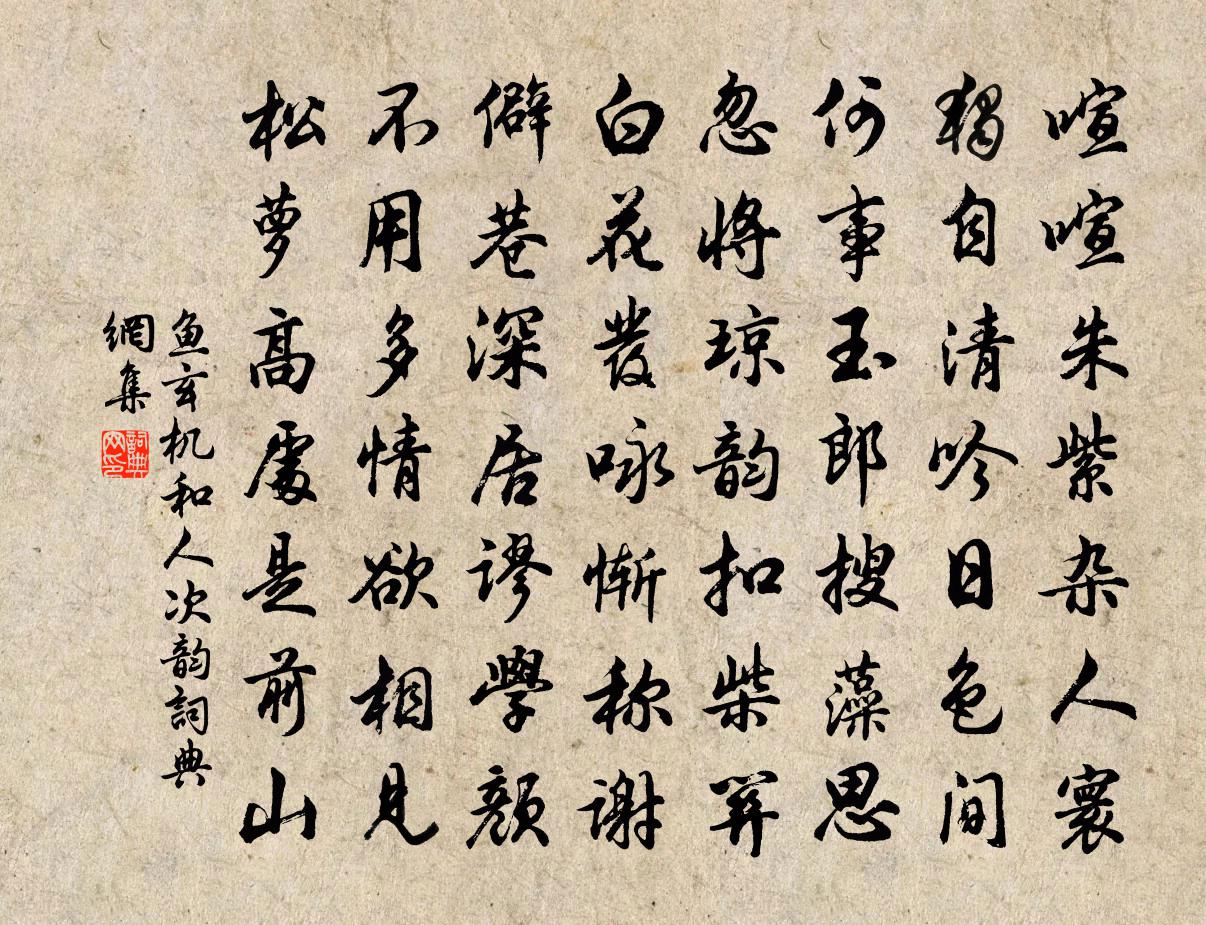 喧喧朱紫杂人寰
独自清吟日色间
何事玉郎搜藻思
忽将琼韵扣柴关
白花发咏惭称谢
僻巷深居谬学颜
不用多情欲相见
松萝高处是前山
鱼玄机和人次韵詞典
網集
詞典
网印